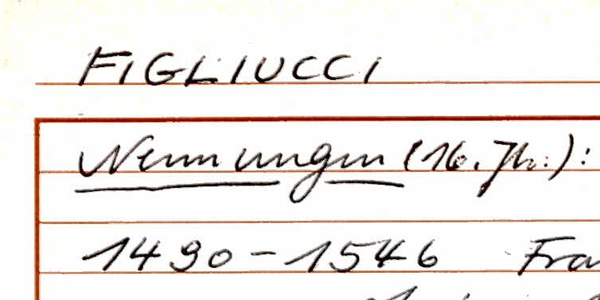 FIGLIUCCI
Nennungen (16. Jh.):
1490-1546 Fra